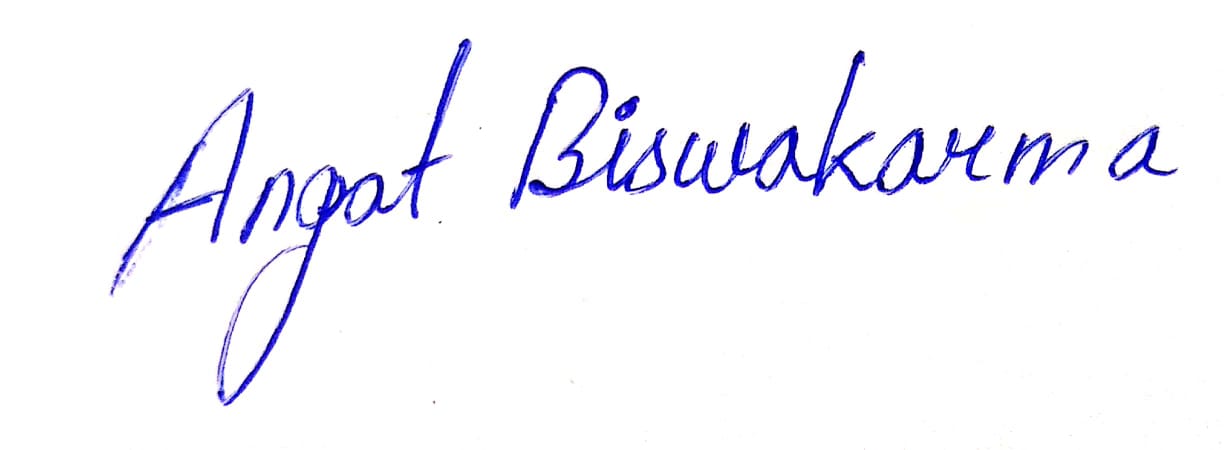 Angat Biswakarma